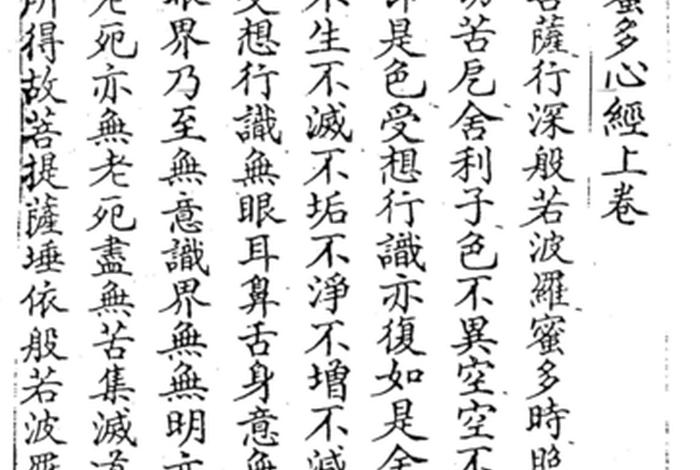 蜜多心經上卷
菩薩行深般若波羅蜜多時照
苦戹舍利子色不異空空不
即是色受想行識亦復如是舍
不生不滅不垢不淨不增不減
受想行識無眼耳鼻舌身意無
眼界乃至無意識界無無明亦
老死亦無老死盡無苦集滅道
所得故菩提薩埵依般若波羅